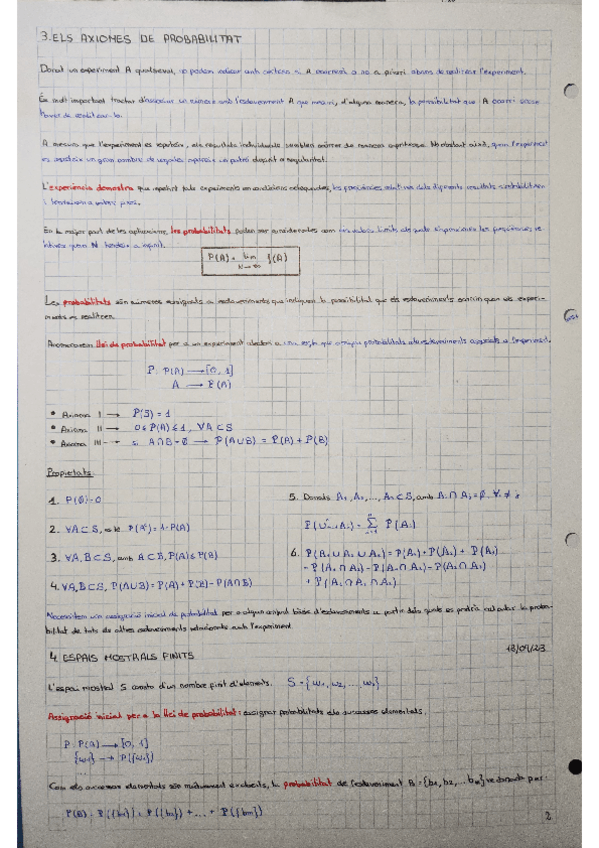 3. ELS AXIOMES DE PROBABILITAT
Donat un experiment A qualsevol, no podem indicar amb certesa si A ocorrerà o no a priori abans de realitzar l'experiment.
És molt important tractar d'associar un número amb l'esdeveniment A que mesuri, d'alguna manera, la possibilitat que A ocorri sense
haver de realitzar-lo.
A mesura que l'experiment es repeteix, els resultats individuals semblen ocórrer de manera capritxosa. No obstant això, quan l'experiment
es repeteix un gran nombre de vegades apareix un patró de regularitat.
L'experiència demostra que repetint tals experiments en condicions adequades, les freqüències relatives dels diferents resultats s'estabilitzen
i tendeixen a valors fixos.
En la major part de les aplicacions, les probabilitats poden ser considerades com uns valors límits als quals s'aproximen les freqüències re-
latives quan N tendeix a infinit.
P(A) = lim f(A)
N→∞
Les probabilitats són números assignats a esdeveniments que indiquen la possibilitat que els esdeveniments ocorrin quan els experi-
ments es realitzen.
Anomenarem llei de probabilitat per a un experiment aleatori a una regla que assigna probabilitats als esdeveniments associats a l'experiment.
P: P(A) → [0, 1]
A → P(A)
• Axioma I → P(S) = 1
• Axioma II → 0≤P(A)≤1, ∀A⊂S
• Axioma III → si A∩B=∅ → P(A∪B) = P(A) + P(B)
Propietats:
1. P(∅)=0
2. ∀A⊂S, es té P(Aᶜ)=1-P(A)
3. ∀A,B⊂S, amb A⊂B, P(A)≤P(B)
4. ∀A,B⊂S, P(A∪B)=P(A)+P(B)-P(A∩B)
5. Donats A₁, A₂, ..., Aₙ⊂S, amb Aᵢ∩Aⱼ=∅, ∀i≠j,
P(∪ⁿᵢ₌₁Aᵢ) = Σ P(Aᵢ)
6. P(A₁∪A₂∪A₃)=P(A₁)+P(A₂)+P(A₃)
-P(A₁∩A₂)-P(A₁∩A₃)-P(A₂∩A₃)
+P(A₁∩A₂∩A₃)
Necessitem una assignació inicial de probabilitat per a algun conjunt bàsic d'esdeveniments a partir dels quals es podrà calcular la proba-
bilitat de tots els altres esdeveniments relacionats amb l'experiment.
4. ESPAIS MOSTRALS FINITS
L'espai mostral S consta d'un nombre finit d'elements. S={w₁, w₂, ..., wₙ}
Assignació inicial per a la llei de probabilitat: assignar probabilitats als successos elementals.
P: P(A) → [0, 1]
{wᵢ} → P({wᵢ})
Com els successos elementals són mútuament excloents, la probabilitat de l'esdeveniment A={b₁, b₂, ... bₘ} ve donada per:
P(B)=P({b₁})+P({b₂})+...+P({bₘ})
2